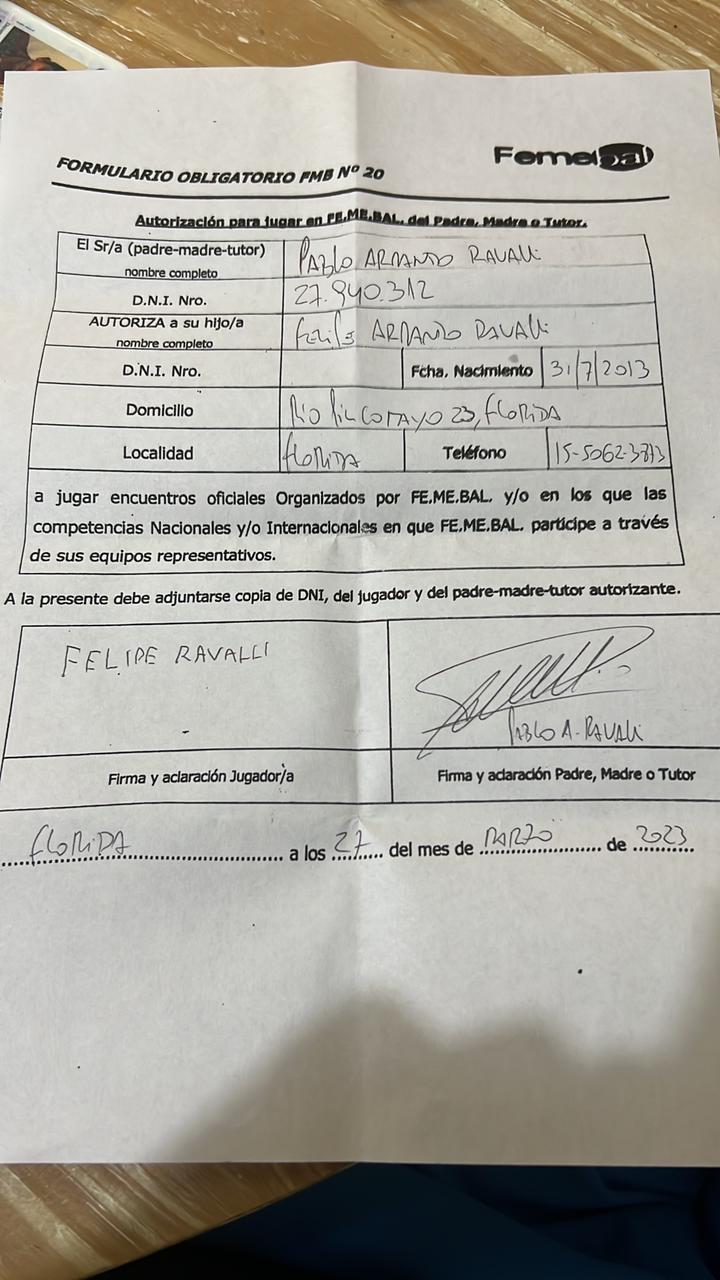 Femebal
FORMULARIO OBLIGATORIO FMB Nº 20
Autorización para jugar en FE.ME.BAL. del Padre, Madre o Tutor.
El Sr/a (padre-madre-tutor) nombre completo PABLO ARMANDO RAVALLI
D.N.I. Nro. 27.940.312
AUTORIZA a su hijo/a nombre completo FELIPE ARMANDO RAVALLI
D.N.I. Nro. Fcha. Nacimiento 31/7/2013
Domicilio RIO PILCOMAYO 23, FLORIDA
Localidad FLORIDA Teléfono 15-5062-3873
a jugar encuentros oficiales Organizados por FE.ME.BAL. y/o en los que las
competencias Nacionales y/o Internacionales en que FE.ME.BAL. participe a través
de sus equipos representativos.
A la presente debe adjuntarse copia de DNI, del jugador y del padre-madre-tutor autorizante.
FELIPE RAVALLI
PABLO A. RAVALLI
Firma y aclaración Jugador/a Firma y aclaración Padre, Madre o Tutor
FLORIDA a los 27 del mes de MARZO de 2023